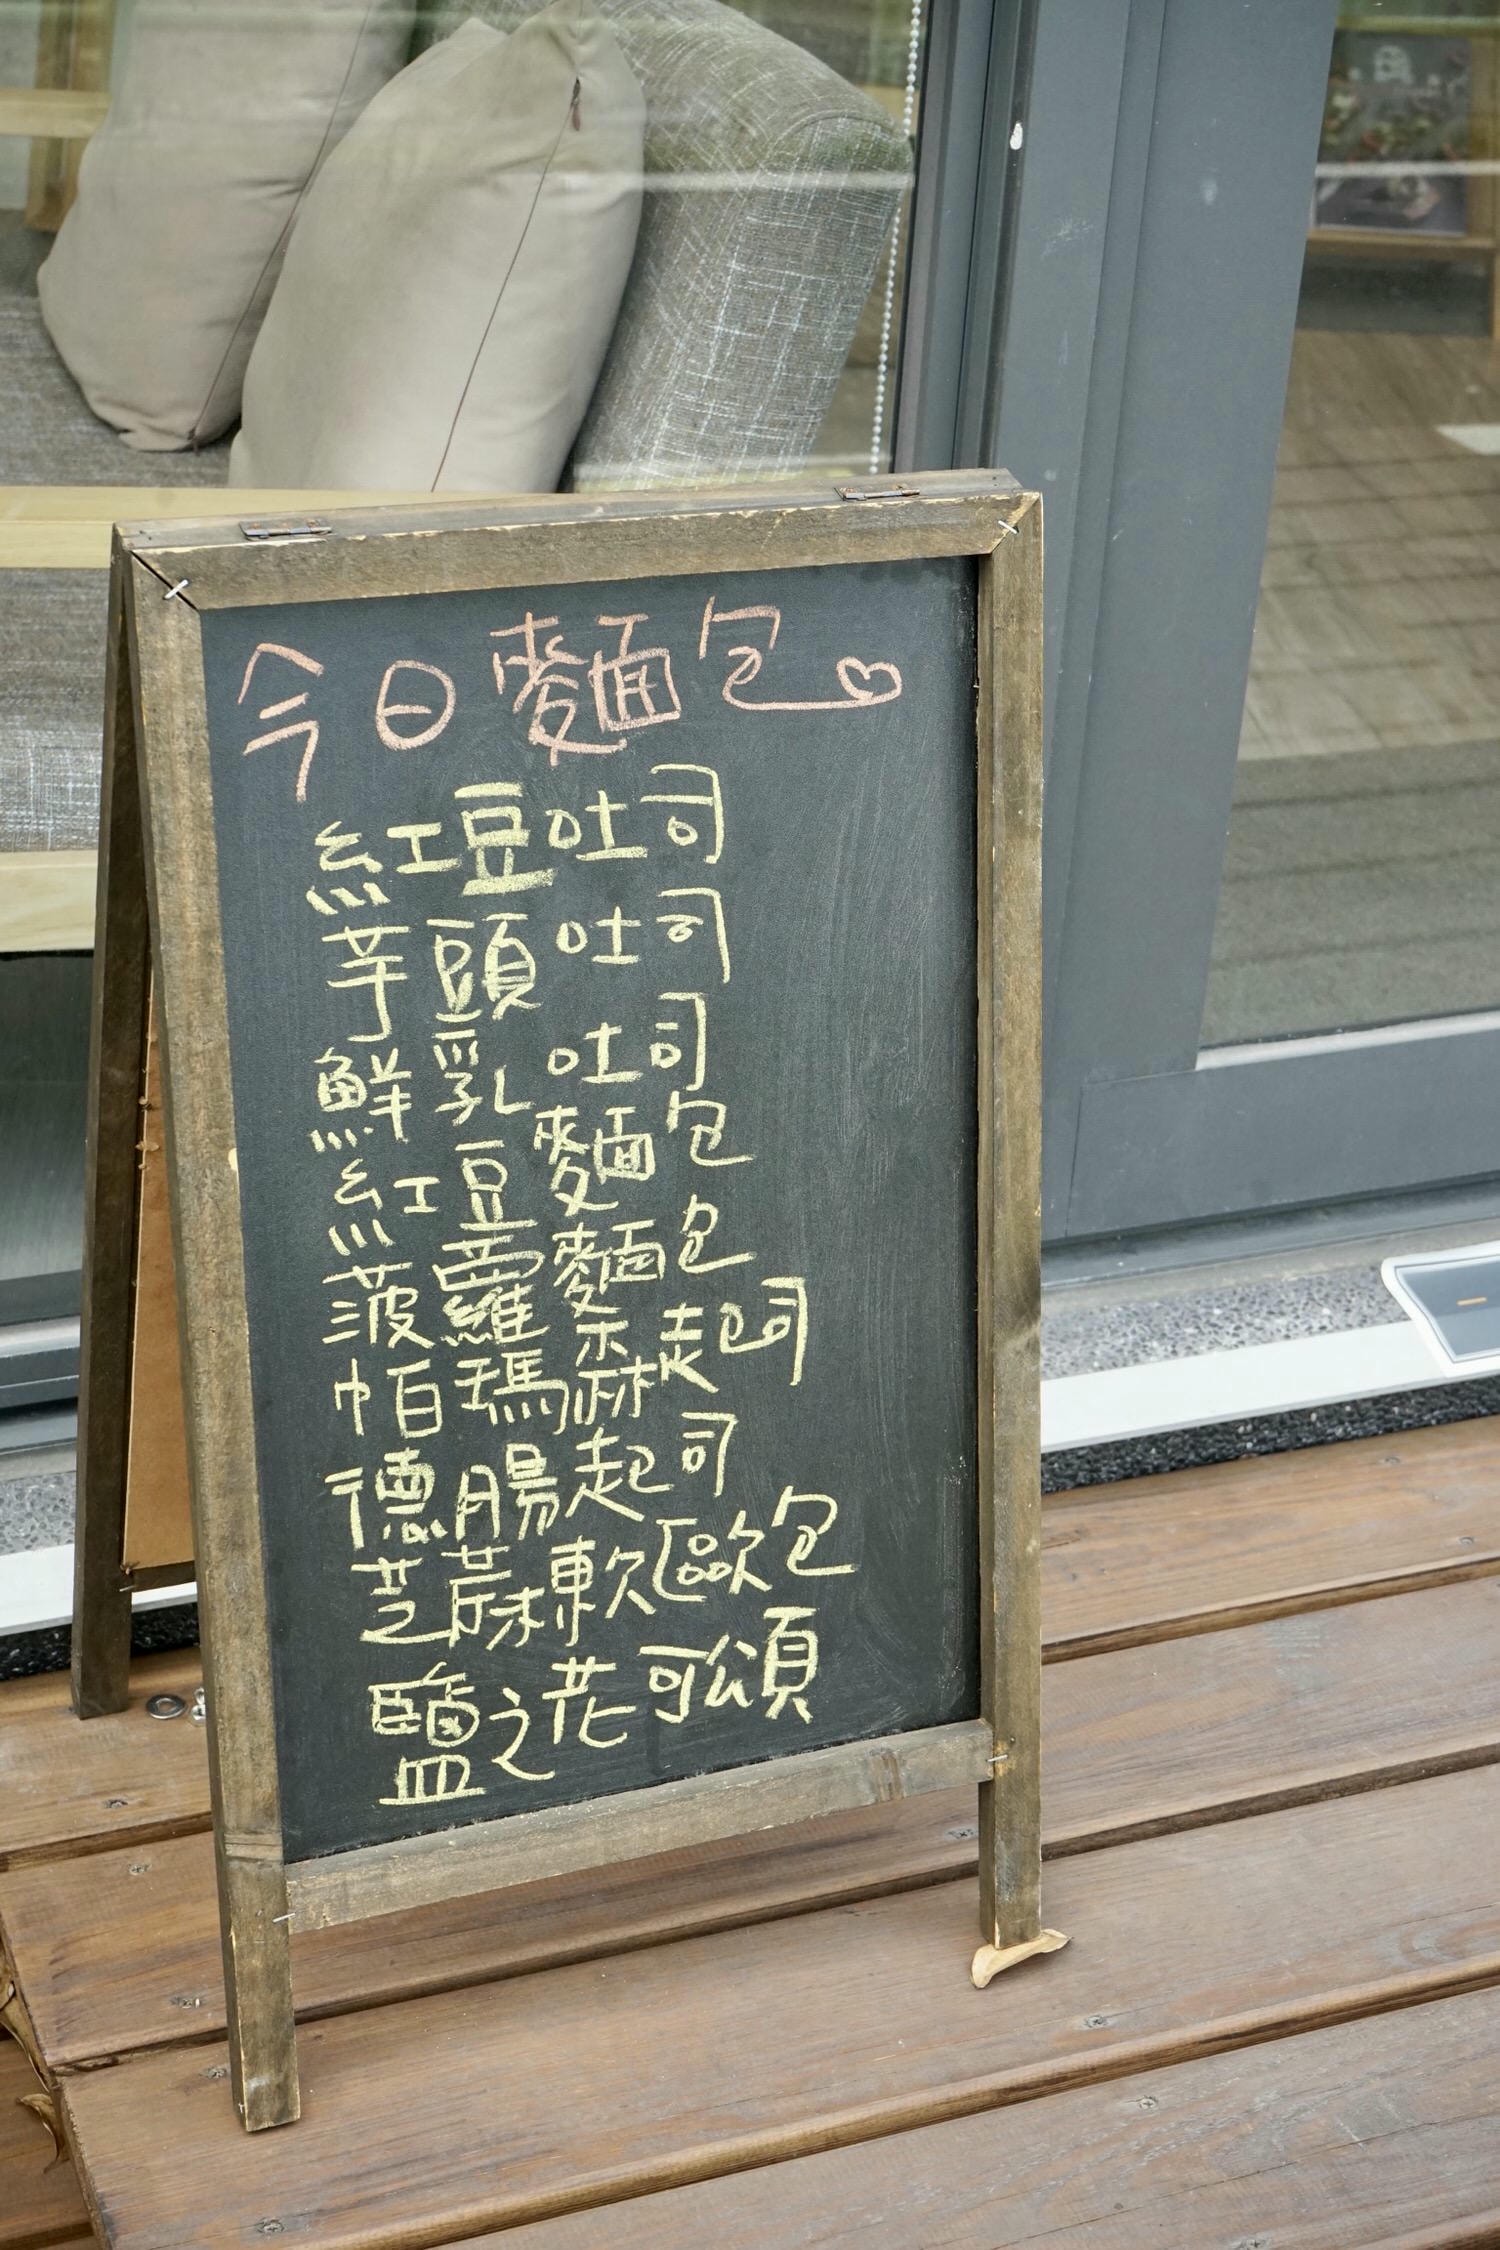 今日麵包
紅豆吐司
芋頭吐司
鮮乳吐司
紅豆麵包
菠蘿麵包
帕瑪森起司
德腸起司
芝蔴軟歐包
鹽之花可頌